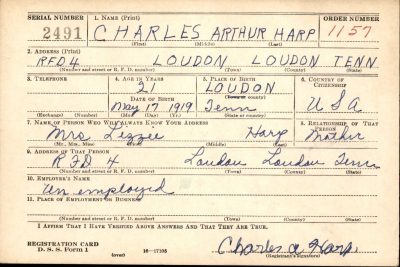 SERIAL NUMBER 1. NAME (Print) ORDER NUMBER
2491 CHARLES ARTHUR HARP 1157
(First) (Middle) (Last)
2. ADDRESS (Print)
RFD4 LOUDON LOUDON TENN
(Number and street or R. F. D. number) (Town) (County) (State)
3. TELEPHONE 4. AGE IN YEARS 5. PLACE OF BIRTH 6. COUNTRY OF CITIZENSHIP
21 LOUDON
DATE OF BIRTH (Town or county)
May 17 1919 Tenn USA
(Exchange) (Number) (Mo.) (Day) (Yr.) (State or country)
7. NAME OF PERSON WHO WILL ALWAYS KNOW YOUR ADDRESS 8. RELATIONSHIP OF THAT PERSON
Mrs. Lizzie Harp Mother
(Mr., Mrs., Miss) (First) (Middle) (Last)
9. ADDRESS OF THAT PERSON
RFD 4 Loudon Loudon Tenn
(Number and street or R. F. D. number) (Town) (County) (State)
10. EMPLOYER'S NAME
Unemployed
11. PLACE OF EMPLOYMENT OR BUSINESS
(Number and street or R. F. D. number) (Town) (County) (State)
I AFFIRM THAT I HAVE VERIFIED ABOVE ANSWERS AND THAT THEY ARE TRUE.
REGISTRATION CARD
D. S. S. Form 1 (over) 16—17105 Charles A Harp
(Registrant's signature)